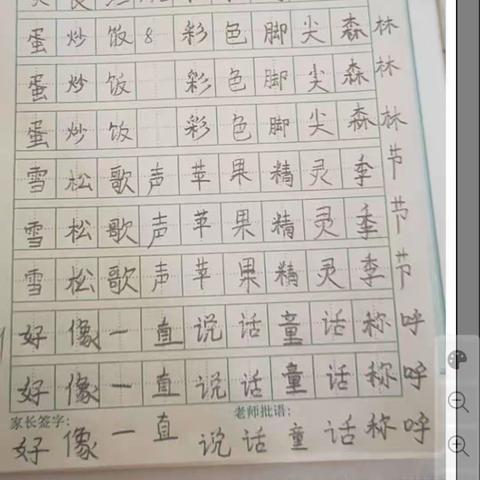 蛋炒饭8彩色脚尖森林
蛋炒饭 彩色脚尖森林
蛋炒饭 彩色脚尖森林
雪松歌声苹果精灵季节
雪松歌声苹果精灵季节
雪松歌声苹果精灵季节
好像一直说话童话称呼
好像一直说话童话称呼
家长签字: 老师批语:
好像一直说话童话称呼